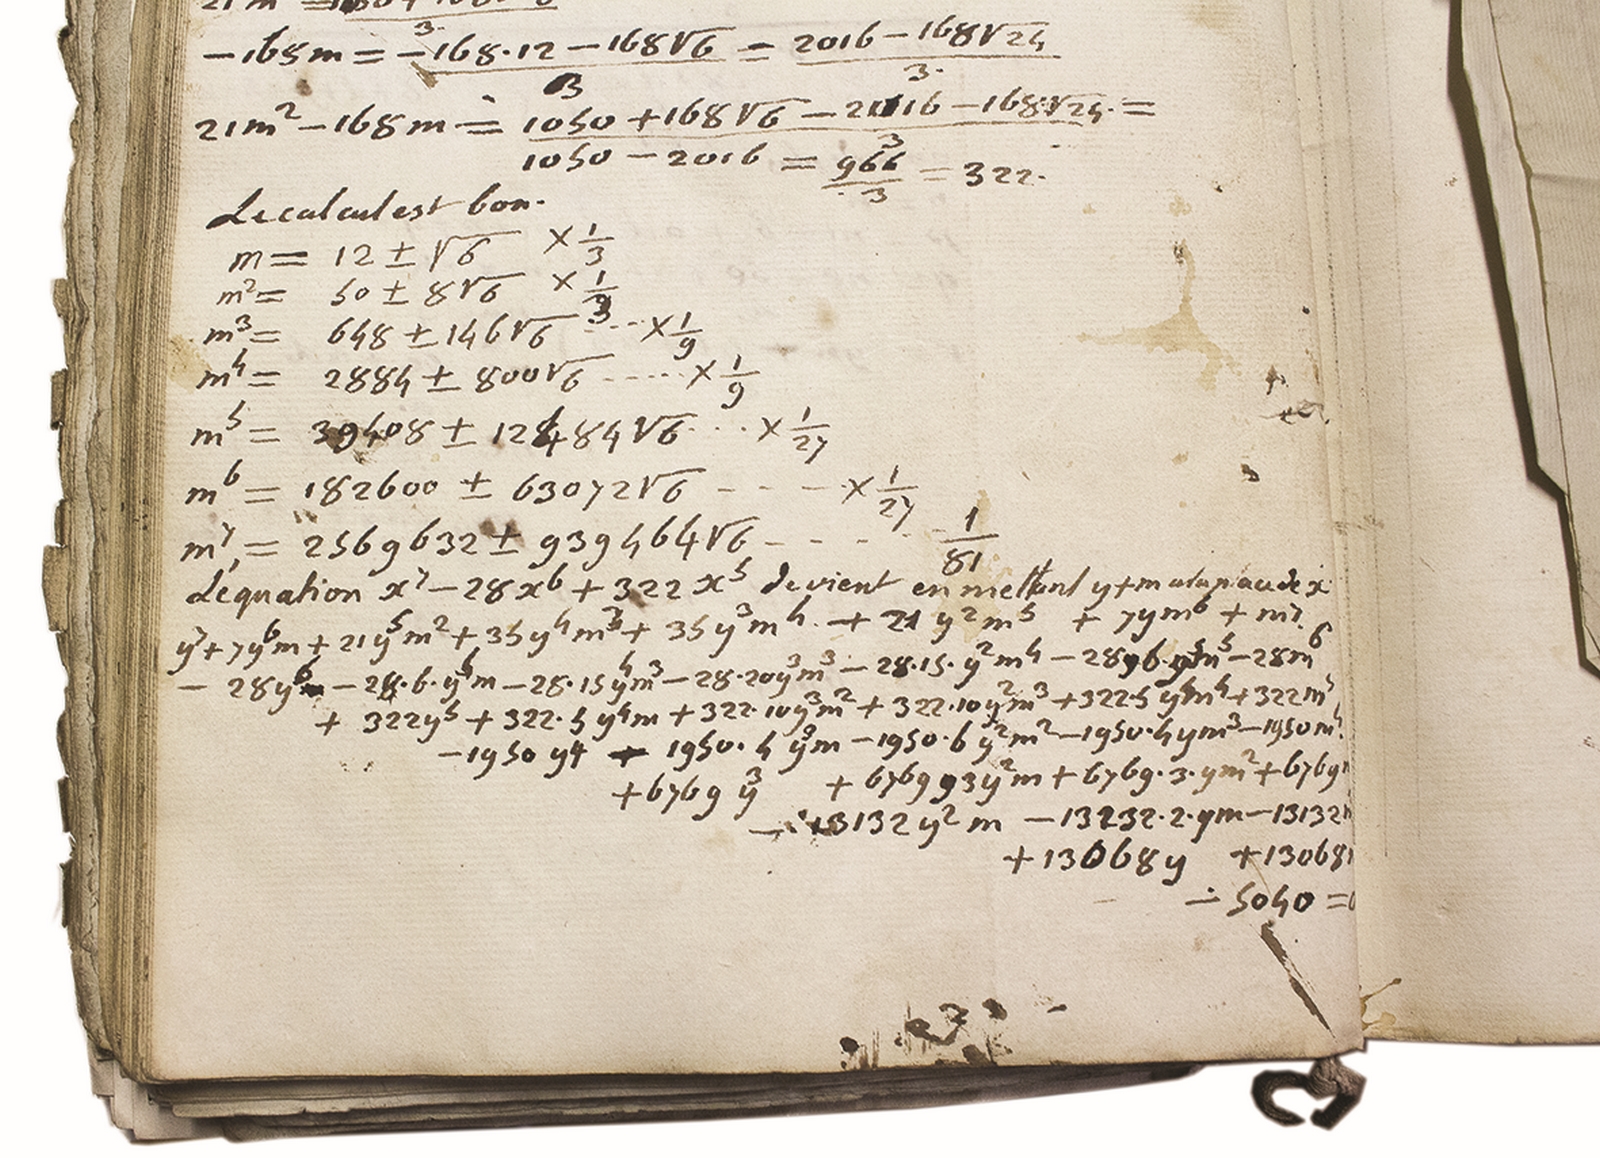 21m =
3.
−168m = −168·12 − 168√6 = 2016 − 168√24
3 3.
21m² − 168m = 1050 + 168√6 − 2016 − 168√24 =
3
1050 − 2016 = 966/3 = 322.
Le calcul est bon.
m = 12 ± √6 × 1/3
m² = 50 ± 8√6 × 1/3
m³ = 648 ± 146√6 ... × 1/9
m⁴ = 2884 ± 800√6 ..... × 1/9
m⁵ = 39408 ± 12484√6 ... × 1/27
m⁶ = 182600 ± 63072√6 - - - × 1/27
m⁷ = 2569632 ± 939464√6 - - - - 1/81
L'équation x⁷ − 28x⁶ + 322x⁵ devient en mettant y+m a la place de x
y⁷ + 7y⁶m + 21y⁵m² + 35y⁴m³ + 35y³m⁴ + 21y²m⁵ + 7ym⁶ + m⁷.
− 28y⁶ − 28·6·y⁵m − 28·15y⁴m³ − 28·20y³m³ − 28·15·y²m⁴ − 28 6·y m⁵ − 28m⁶
+ 322y⁵ + 322·5y⁴m + 322·10y³m² + 322·10y²m³ + 322·5 y m⁴ + 322m⁵
−1950y4 1950·4y³m − 1950·6y²m² − 1950·4ym³ − 1950m⁴
+6769y³ + 6769 3y²m + 6769·3·ym² + 6769
− 13132y²m − 13232·2·ym − 13132
+13068y +13068
− 5040 = 0